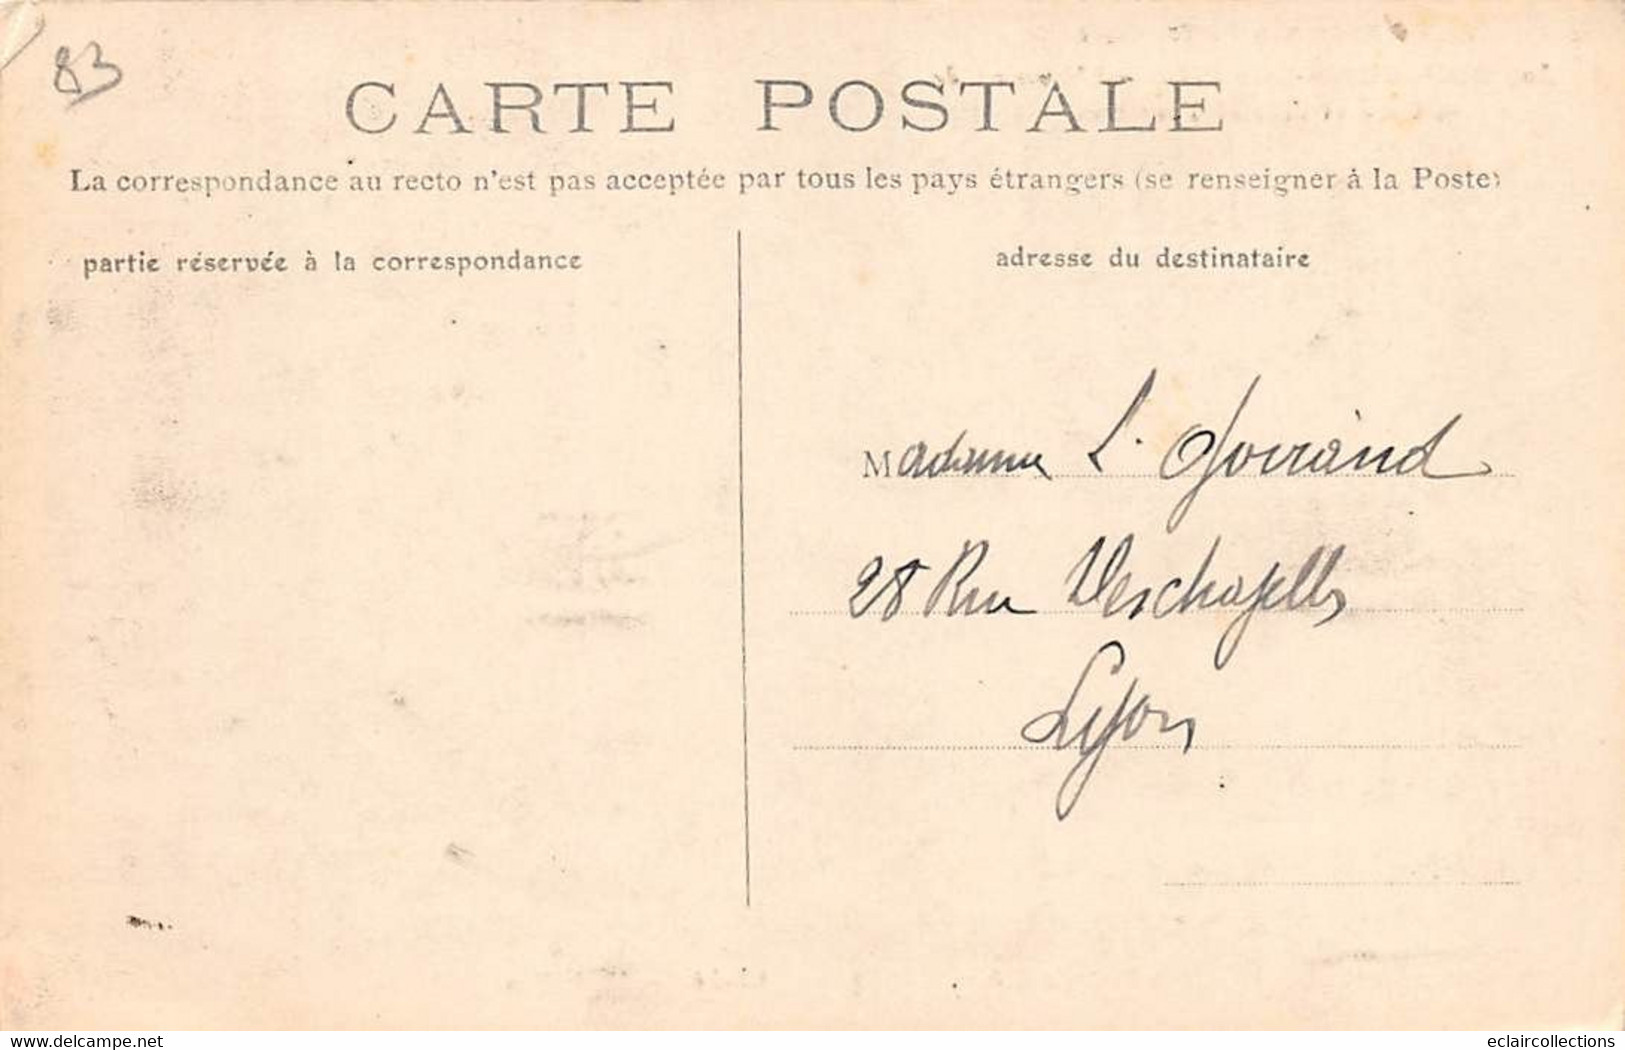 83
CARTE POSTALE
La correspondance au recto n'est pas acceptée par tous les pays étrangers (se renseigner à la Poste)
partie réservée à la correspondance
adresse du destinataire
Madame L.
28 Rue Deschapelles
Lyon
www.delcampe.net
eclaircollections